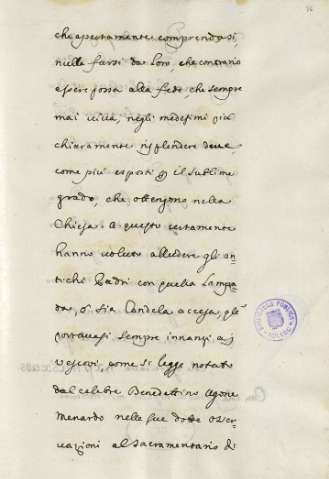 che apertamente comprendasi,
nulla farsi da loro, che contrario
essere possa alla fede, che sempre
mai viva, negli medesimi più
chiaramente risplendere deve,
come più esposti p il sublime
grado, che ottengono nella
Chiesa. A questo certamente
hanno voluto alludere gli an
tichi Padri con quella Lampa
da, o sia Candela accesa, che
portavasi sempre innanzi a i
Vescovi, come si legge notato
dal celebre Benedettino Ugone
Menardo nelle sue dotte osser
vazioni al Sacramentario di